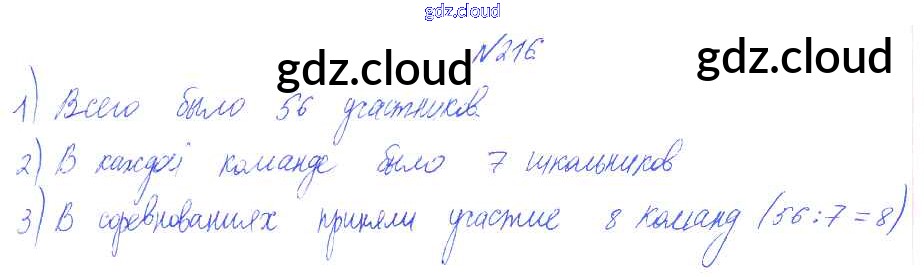 gdz.cloud
№216
gdz.cloud gdz.cloud
1) Всего было 56 участников.
2) В каждой команде было 7 школьников
3) В соревнованиях приняли участие 8 команд (56:7=8)